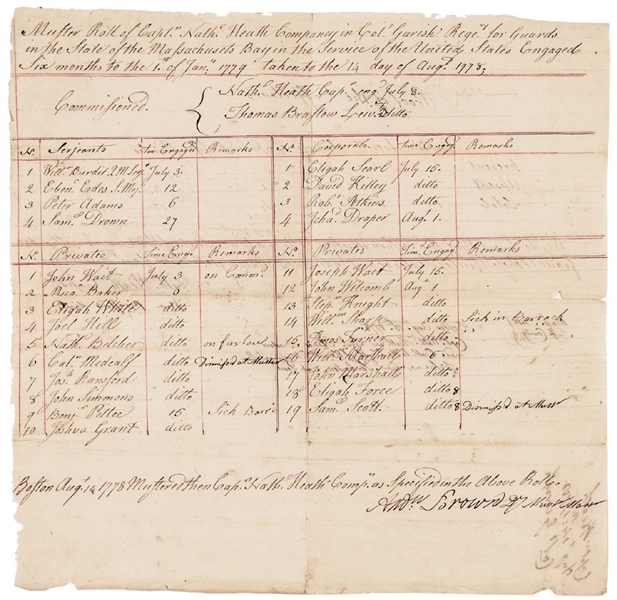 Muster Roll of Capt.ⁿ Nath.ˡ Heath Company in Col.º Garish Reg.ᵗ for Guards
in the State of the Massachusets Bay in the Service of the United States Engaged
Six months to the 1.ˢᵗ of Jan.ʸ 1779 taken to the 14 day of Aug.ᵗ 1778;
Commissioned.
Nath.ˡ Heath Cap.ⁿ eng. July 8.
Thomas Braslow ditto
N.º Serjeants Time Engaged Remarks N.º Corporals Time Engag.ᵈ Remarks
1 Will.ᵐ Burdit Q M Serj.ᵗ July 3. 1 Elijah Searl July 15.
2 Eben.ʳ Edes S. Maj. 12 2 David Killey ditto
3 Peter Adams 6 3 Rob.ᵗ Atkins ditto
4 Sam.ˡ Drown 27 4 Draper Aug.ᵗ 1.
N.º Privates Time Eng.ᵈ Remarks N.º Privates Tim. Engag.ᵈ Remarks
1 John Wait July 3 on Comm.ᵈ 11 Joseph Wait July 15.
2 Baker 6 12 John Witcomb Aug.ᵗ 1
3 Elijah White ditto 13 Knight ditto
4 Joel Hill ditto 14 Will.ᵐ ditto Sick in Barrack
5 Nath. Belcher ditto on furlow 15 Turner ditto
6 Medcalf ditto Dismiss'd at Muster 16 Marshall 6.
7 Jos.ʰ Ransford ditto 17 John Marshall ditto
8 John Simmons ditto 18 Elijah Force ditto 8
9 Benj.ⁿ Pettee 15 Sick 19 Sam.ˡ Scott. ditto 8 Dismiss'd at Must
10 Joshua Grant ditto
Boston Aug.ᵗ 14 1778 Mustered then Cap.ⁿ Nath.ˡ Heath Comp.ʸ as Specified in the Above Roll.
And.ʷ Brown Dʸ Must Mast